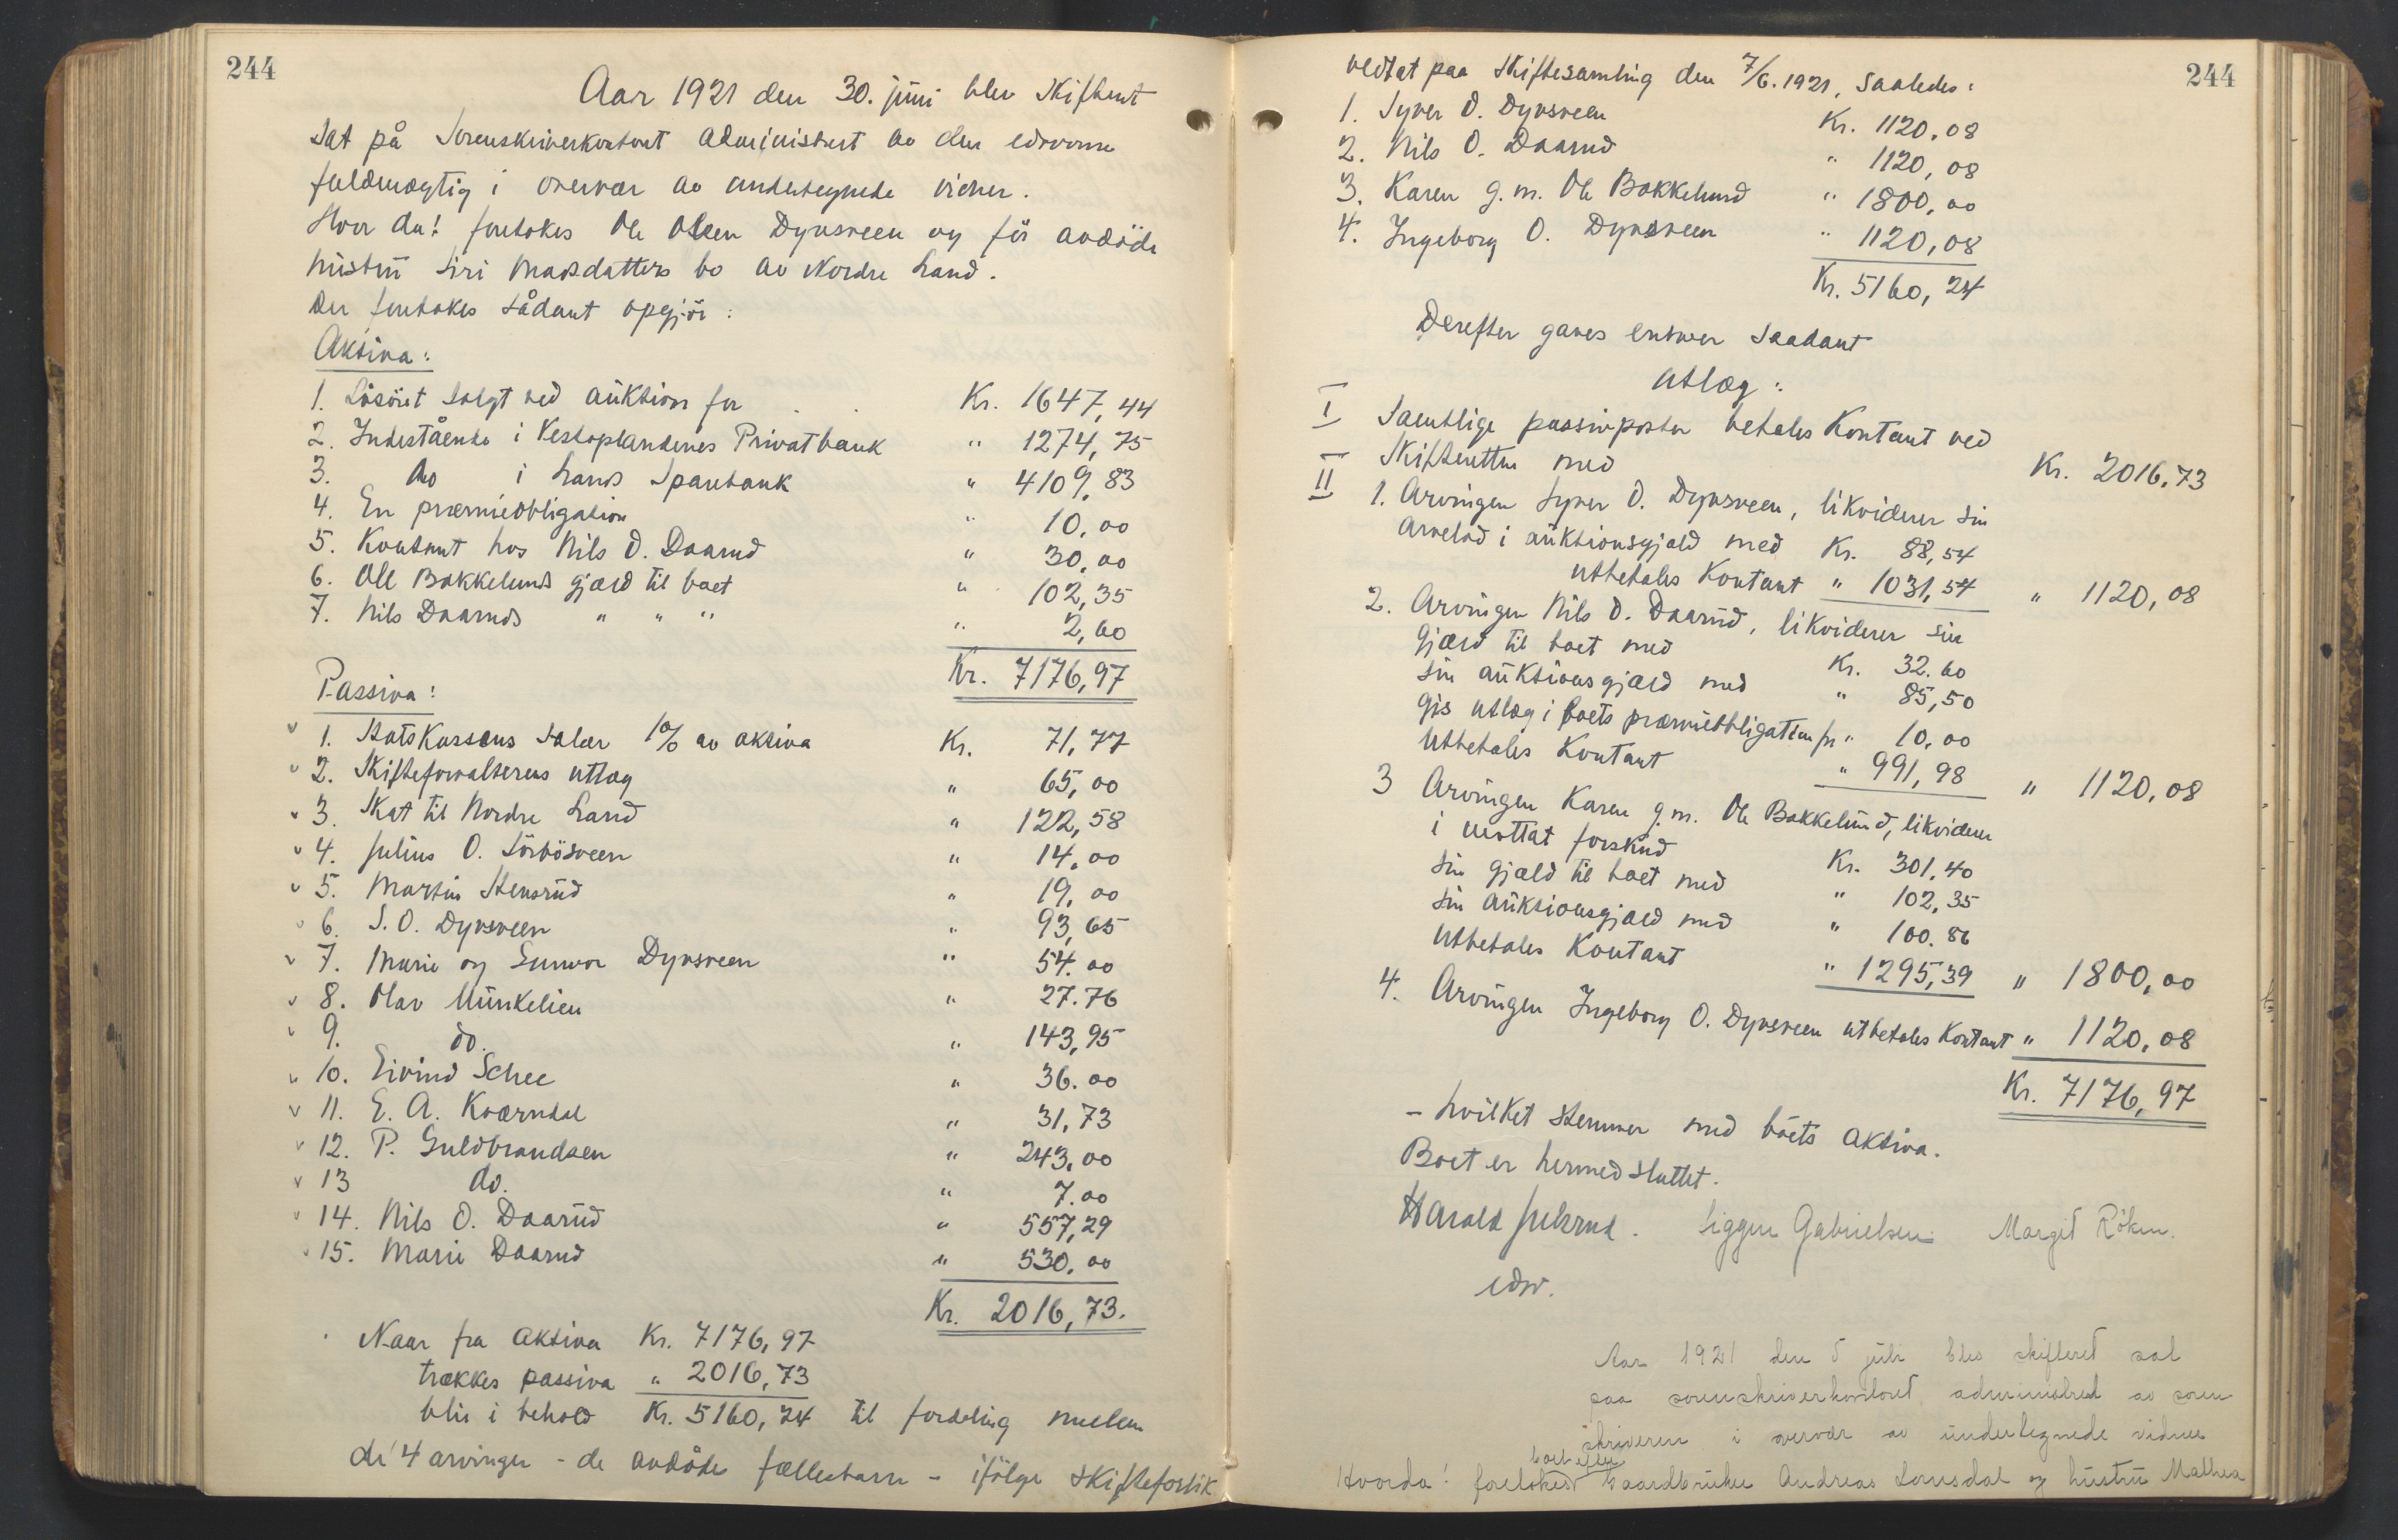 244
Aar 1921 den 30. juni blev skifteret
sat på Sorenskriverkontoret administrert av den edsvorne
fuldmægtig i overvær av undertegnede vidner.
Hvor da! foretokes Ole Olsen Dyrsveen og før avdøde
hustru Siri Madsdatters bo av Nordre Land.
Der foretokes sådant opgjør:
Aktiva:
1. Løsøret solgt ved auktion for . . Kr. 1647,44
2. Indestående i Vestoplandenes Privatbank " 1274,75
3. do i Lands Sparebank " 4109,83
4. En præmieobligation " 10,00
5. Kontant hos Nils O. Daarud " 30,00
6. Ole Bakkelunds gjæld til boet " 102,35
7. Nils Daaruds " " " " 2,60
Kr. 7176,97
Passiva:
v 1. Statskassens salær 1% av aktiva Kr. 71,77
v 2. Skifteforvalterens utlæg " 65,00
v 3. Skat til Nordre Land " 122,58
v 4. Julius O. Sörbösveen " 14,00
v 5. Martin Stensrud " 19,00
v 6. S. O. Dyrsveen " 93,65
v 7. Marie og Gunvor Dyrsveen " 54.00
v 8. Olav Munkelien " 27.76
v 9. do. " 143,95
v 10. Eivind Schee " 36.00
v 11. E. A. Kværndal " 31,73
v 12. P. Guldbrandsen " 243,00
v 13 do. " 7.00
v 14. Nils O. Daarud " 557,29
v 15. Marie Daarud " 530.00
Kr. 2016,73.
Naar fra aktiva Kr. 7176,97
trækkes passiva " 2016,73
blir i behold Kr. 5160,24 til fordeling mellem
de 4 arvinger - de avdødes fællesbarn - ifølge skifteforlik
244
vedtat paa skiftesamling den 7/6.1921, saaledes:
1. Syver O. Dyrsveen Kr. 1120,08
2. Nils O. Daarud " 1120,08
3. Karen g.m. Ole Bakkelund " 1800,00
4. Ingeborg O. Dyrsveen " 1120,08
Kr. 5160,24
Derefter gaves enhver saadant
Utlæg:
I Samtlige passivposter betales kontant ved
skifteretten med Kr. 2016,73
II 1. Arvingen Syver O. Dyrsveen, likviderer sin
arvelod i auktionsgjæld med Kr. 88,54
utbetales kontant " 1031,54 " 1120,08
2. Arvingen Nils O. Daarud, likviderer sin
gjæld til boet med Kr. 32.60
sin auktionsgjæld med " 85,50
gis utlæg i boets præmieobligation for " 10,00
utbetales kontant " 991,98 " 1120,08
3 Arvingen Karen g.m. Ole Bakkelund, likviderer
i mottat forskud Kr. 301,40
sin gjæld til boet med " 102,35
sin auktionsgjæld med " 100.86
utbetales kontant " 1295,39 " 1800,00
4. Arvingen Ingeborg O. Dyrsveen utbetales kontant " 1120,08
Kr. 7176,97
- hvilket stemmer med boets aktiva.
Boet er hermed sluttet.
Harald Siggen Gabrielsen Margit Røken.
edsv.
Aar 1921 den 5 juli blev skifteret sat
paa sorenskriverkontoret, administrert av soren-
skriveren i overvær av undertegnede vidner
Hvorda! foretokes boet efter gaardbruker Andreas Lonsdal og hustru Mathea